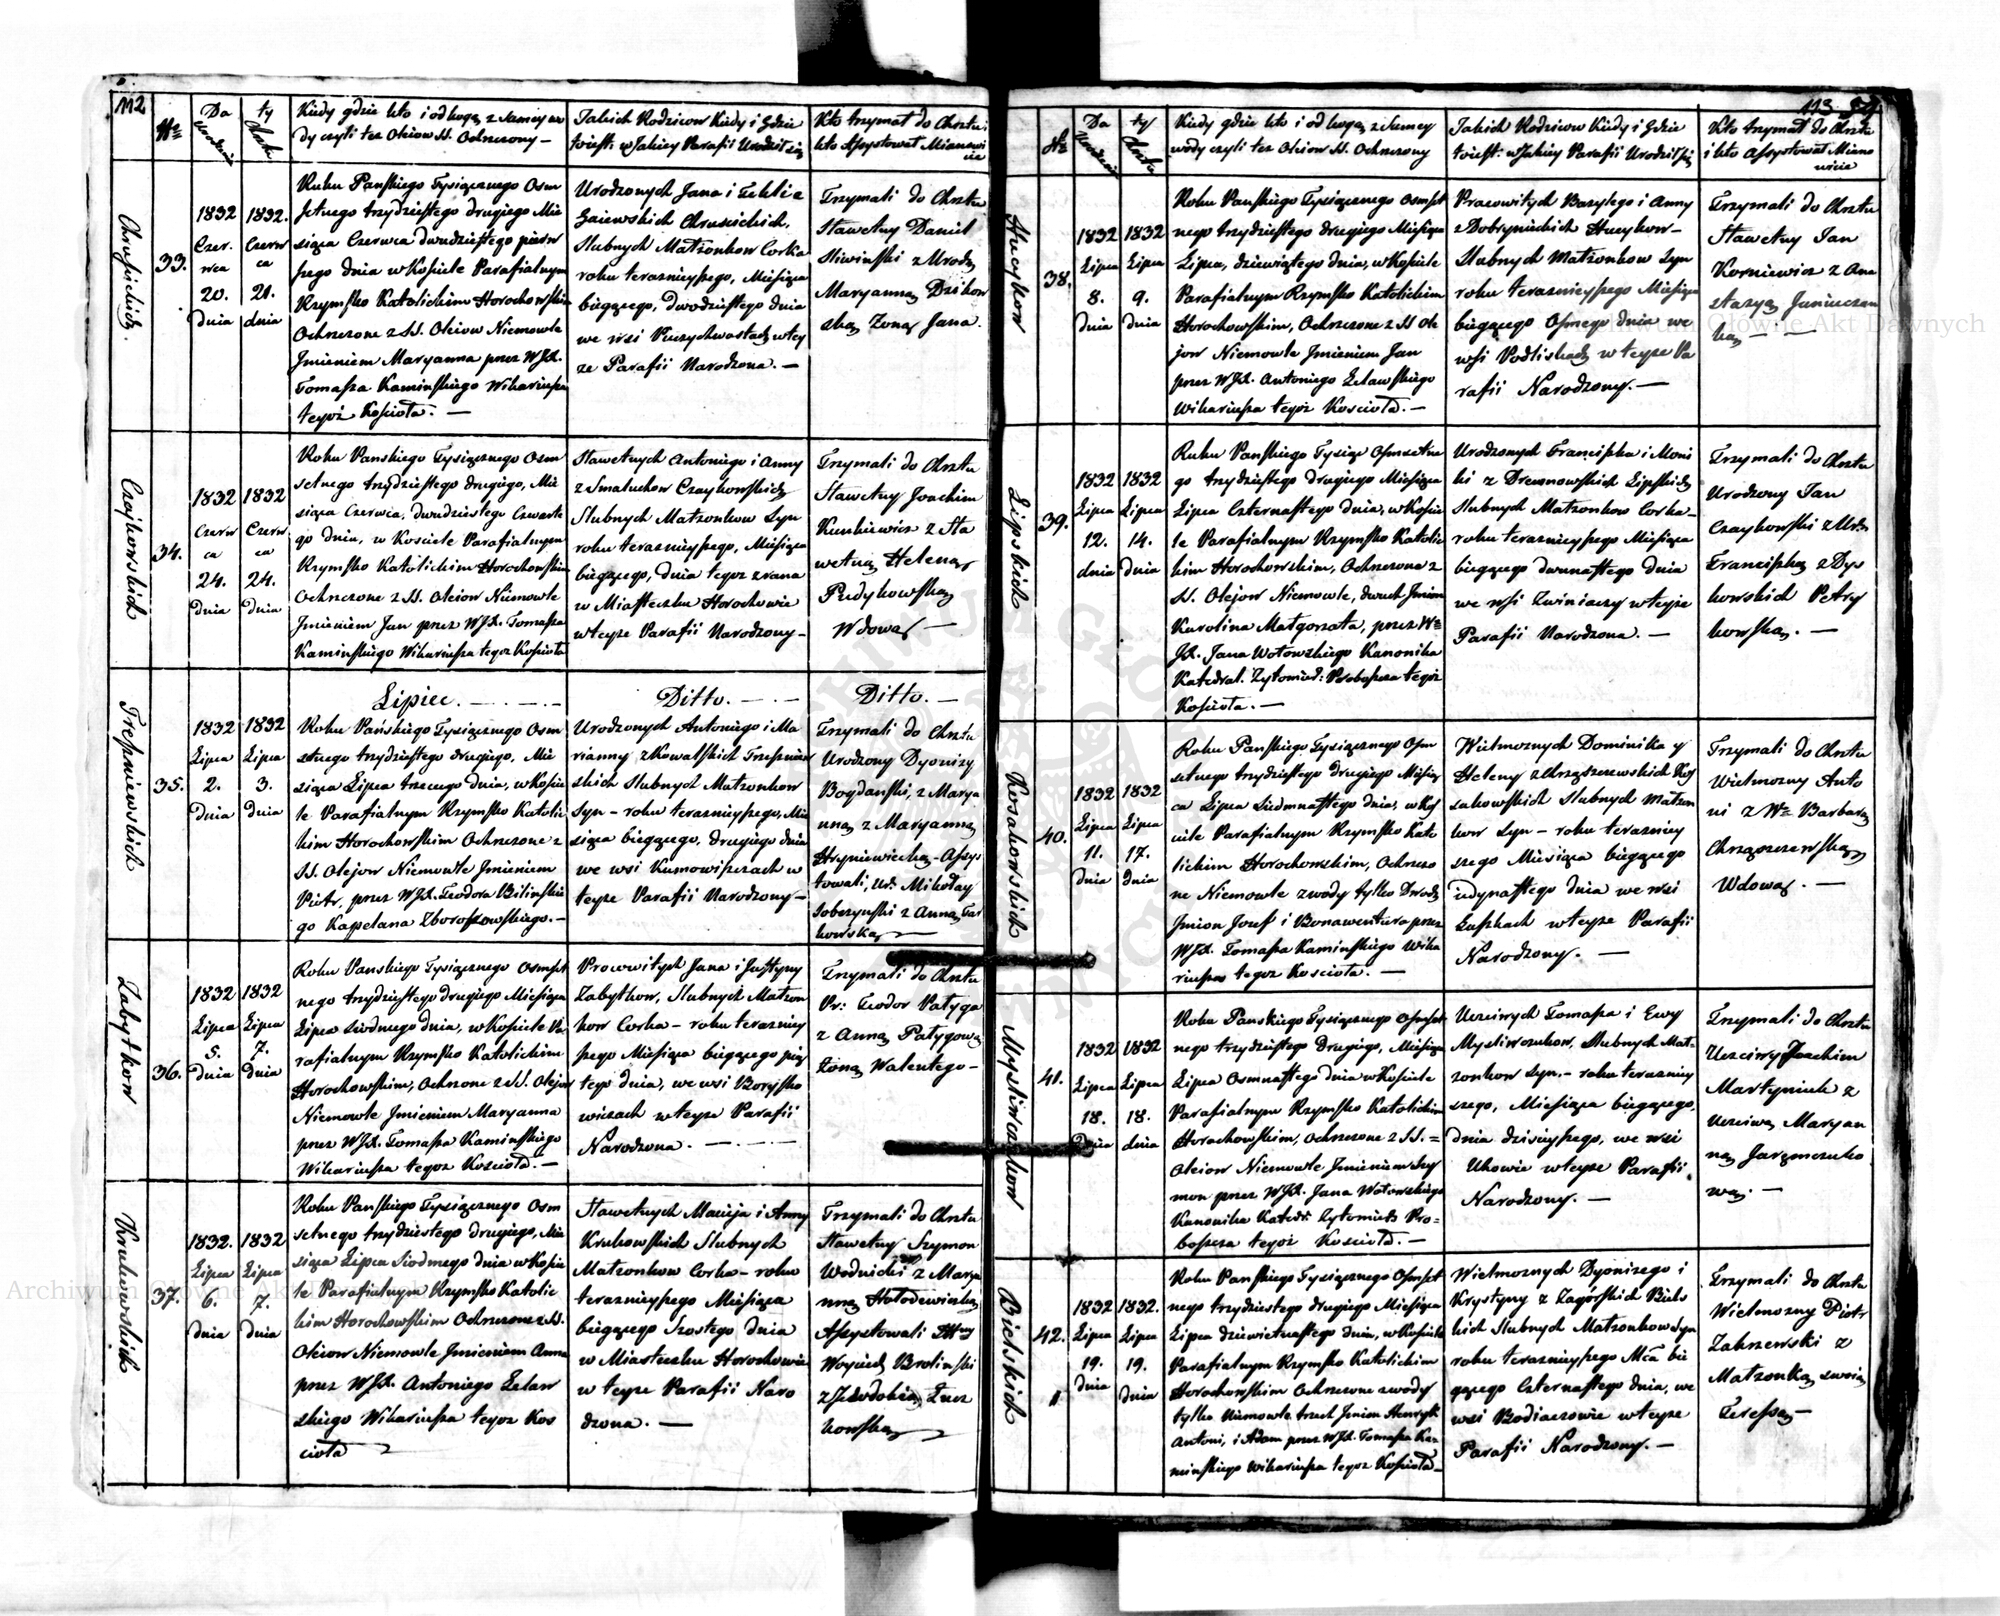 112
Nro
Da
urodzenia
ty
Chrztu
Kiedy gdzie kto i od kogo z samey wo
dy czyli też Oleiow SS. Ochrzczony —
Jakich Rodzicow Kiedy i Gdzie
toiest: w Jakiey Parafii Urodził się
Kto trzymał do Chrztu i
kto Assystował Mianowi
cie
Chruścickich.
33.
1832
Czer-
wca
20.
Dnia
1832.
Czerw
ca
21.
dnia
Roku Pańskiego Tysiącznego Osm
setnego trzydziestego drugiego Mie
siąca Czerwca dwudziestego pierw
szego dnia w Kościele Parafialnym
Rzymsko Katolickim Horochowskim
Ochrzczone z SS. Oleiow Niemowle
Jmieniem Maryanna przez WJX.
Tomasza Kamińskiego Wikariusza
tegoż Kościoła. —
Urodzonych Jana i Tekli z
Gaiewskich Chruścickich,
Slubnych Małżonkow Corka
roku teraznieyszego, Miesiąca
bieżącego, dwudziestego dnia
we wsi Puzychwostach w tey
że Parafii Narodzona. —
Trzymali do Chrztu
Sławetny Daniel
Sliwinski z Urodz
Maryanną Dzikow
ską Zoną Jana.
Czajkowskich
34.
1832
Czerw
ca
24.
Dnia
1832
Czerw
ca
24.
Dnia
Roku Pańskiego Tysiącznego Osm
setnego trzydziestego drugiego, Mie
siąca Czerwca, dwudziestego Czwarte
go dnia, w Kościele Parafialnym
Rzymsko Katolickim Horochowskim
Ochrzczone z SS. Oleiow Niemowle
Jmieniem Jan przez WJX. Tomasza
Kaminskiego Wikariusza tegoż Kościoła
Sławetnych Antoniego i Anny
z Smaluchow Czaykowskich
Slubnych Małżonkow Syn
roku teraznieyszego, Miesiąca
bieżącego, dnia tegoż zrana
w Miasteczku Horochowie
w teyże Parafii Narodzony —
Trzymali do Chrztu
Sławetny Joachim
Kunkiewicz z Sła
wetną Heleną
Pudykowską
Wdową —
Trepniewskich
Lipiec. — — —
Ditto. — —
Ditto. —
35.
1832
Lipca
2.
Dnia
1832
Lipca
3.
dnia
Roku Pańskiego Tysiącznego Osm
setnego trzydziestego drugiego, Mie
siąca Lipca trzeciego dnia, w Koscie
le Parafialnym Rzymsko Katolic
kim Horochowskim Ochrzczone z
SS. Olejow Niemowle Jmieniem
Piotr, przez WJX. Teodora Bilinskie
go Kapelana Zboroszowskiego. —
Urodzonych Antoniego i Ma
rianny z Kowalskich Trepniew
skich Slubnych Małżonkow
Syn — roku teraznieyszego, Mie
siąca bieżącego, drugiego dnia
we wsi Kumowiszczach w
teyże Parafii Narodzony —
Trzymali do Chrztu
Urodzony Dyonizy
Bogdański, z Marya
nną z Maryanną
Hryniewiecką — Assys
towali, Ur: Mikołay
Sobczyński z Anną Tar
kowską —
Zabytkow
36.
1832
Lipca
5.
Dnia
1832
Lipca
7.
Dnia
Roku Pańskiego Tysiącznego Osmset
nego trzydziestego drugiego Miesiąca
Lipca siodmego dnia, w Kościele Pa
rafialnym Rzymsko Katolickim
Horochowskim, Ochrzczone z SS. Olejow
Niemowle Jmieniem Maryanna
przez WJX. Tomasza Kamińskiego
Wikariusza tegoż Kościoła. —
Pracowitych Jana i Justyny
Zabytkow, Slubnych Małżon
kow Corka — roku terazniey
szego Miesiąca bieżącego pią
tego dnia, we wsi Borysko
wiczach w teyże Parafii
Narodzona. —
Trzymali do Chrztu
Pr: Teodor Patyga
z Anną Patygową
Zoną Walentego —
Krukowskich
37.
1832.
Lipca
6.
Dnia
1832
Lipca
7.
Dnia
Roku Pańskiego Tysiącznego Osm
setnego trzydziestego drugiego, Mie
siąca Lipca Siodmego dnia w Koscie
le Parafialnym Rzymsko Katolic
kim Horochowskim Ochrzczone z SS.
Oleiow Niemowle Jmieniem Anna
przez WJX. Antoniego Zelaw
skiego Wikariusza tegoż Koś
cioła
Sławetnych Macieja i Anny
Krukowskich Slubnych
Małżonkow Corka — roku
teraznieyszego Miesiąca
bieżącego Szostego dnia
w Miasteczku Horochowie
w teyże Parafii Naro
dzona. —
Trzymali do Chrztu
Sławetny Szymon
Wodnicki z Marya
nną Hołodewiczką
Assystowali
Woyciech Brolinski
113 59
Nr
Da
Urodzenia
ty
Chrztu
Kiedy gdzie kto i od kogo, z samey
wody czyli też Oleiow SS. Ochrzczony
Jakich Rodzicow Kiedy i Gdzie
toiest: w Jakiey Parafii Urodził się
Kto trzymał do Chrztu
i kto Assystował Miano
wicie
Hucykow
38.
1832
Lipca
8.
Dnia
1832
Lipca
9.
Dnia
Roku Pańskiego Tysiącznego Osmset
nego trzydziestego drugiego Miesiąca
Lipca, dziewiątego dnia, w Kościele
Parafialnym Rzymsko Katolickim
Horochowskim, Ochrzczone z SS Ole
jow Niemowle Jmieniem Jan
przez WJX. Antoniego Zelawskiego
Wikariusza tegoż Kościoła. —
Pracowitych Bazylego i Anny
z Dobrynickich Hucykow —
Slubnych Małżonkow Syn
roku teraznieyszego Miesiąca
bieżącego Osmego dnia we
wsi Podliskach w teyże Pa
rafii Narodzony. —
Trzymali do Chrztu
Sławetny Jan
Korniewicz z Ana
stazyą Juniuczen
ką — —
Lipskich
39.
1832
Lipca
12.
dnia
1832
Lipca
14.
Dnia
Roku Pańskiego Tysiąc Osmsetne
go trzydziestego drugiego Miesiąca
Lipca Czternastego dnia, w Koscie
le Parafialnym Rzymsko Katolic
kim Horochowskim, Ochrzczone z
SS. Olejow Niemowle, dwuch Jmion
Karolina Małgorzata, przez W
JX. Jana Wotowskiego Kanonika
Katedral. Zytomier: Proboszcza tegoż
Kościoła. —
Urodzonych Franciszka i Moni
ki z Drewnowskich Lipskich
Slubnych Małżonkow Corka —
roku teraznieyszego Miesiąca
bieżącego dwunastego dnia
we wsi Zwiniaczy w teyże
Parafii Narodzona. —
Trzymali do Chrztu
Urodzony Jan
Czaykowski z Ur.
Franciszką z Dys
kowskich Petry
kowską. —
Kosakowskich
40.
1832
Lipca
11.
Dnia
1832
Lipca
17.
dnia
Roku Pańskiego Tysiącznego Osm
setnego trzydziestego drugiego Miesią
ca Lipca Siedmnastego dnia, w Koś
ciele Parafialnym Rzymsko Kato
lickim Horochowskim, Ochrzczo
ne Niemowle z wody tylko Dwoch
Jmion Jozef i Bonawentura przez
WJX. Tomasza Kamińskiego Wika
riusza tegoż Kościoła. —
Wielmoznych Dominika y
Heleny z Chrząszczewskich Kos
sakowskich Slubnych Małżon
kow Syn — roku terazniey
szego Miesiąca bieżącego
iedynastego dnia we wsi
Łuszkach w teyże Parafii
Narodzony. —
Trzymali do Chrztu
Wielmozny Anto
ni z W Barbarą
Chrząszczewską
Wdową. —
Mysliwczukow
41.
1832
Lipca
18.
Dnia
1832
Lipca
18.
dnia
Roku Pańskiego Tysiącznego Osmset
nego trzydziestego Drugiego, Miesiąca
Lipca Osmnastego dnia w Kościele
Parafialnym Rzymsko Katolickim
Horochowskim, Ochrzczone z SS. =
Oleiow Niemowle Jmieniem Szy
mon przez WJX. Jana Wotowskiego
Kanonika Katedr. Zytomiers Pro=
boszcza tegoż Kościoła. —
Uczciwych Tomasza i Ewy
Mysliwczukow, Slubnych Mał-
żonkow Syn. — roku terazniey
szego, Miesiąca bieżącego,
dnia dzisieyszego, we wsi
Uhowie w teyże Parafii
Narodzony. —
Trzymali do Chrztu
Uczciwy Joachim
Martyniuk z
Uczciwą Maryan
ną Jaremczuko
wą. —
Bielskich
42.
1832
Lipca
19.
Dnia
1832.
Lipca
19.
Dnia
Roku Pańskiego Tysiącznego Osmset
nego trzydziestego drugiego Miesiąca
Lipca dziewietnastego dnia, w Kościele
Parafialnym Rzymsko Katolickim
Horochowskim Ochrzczone z wody
tylko Niemowle trzech Jmion Henryk
Antoni, i Adam przez WJX. Tomasza Ka-
minskiego Wikariusza tegoż Kościoła —
Wielmoznych Dyonizego i
Krystyny z Zagórskich Biels
kich Slubnych Małżonkow Syn
roku teraznieyszego Mca bie
żącego Czternastego dnia, we
wsi Bodiaczowie w teyże
Parafii Narodzony. —
Trzymali do Chrztu
Wielmozny Piotr
Zakrzewski z
Małżonką swoią
Teressą —
Archiwum Główne Akt Dawnych
Archiwum Główne Akt Dawnych